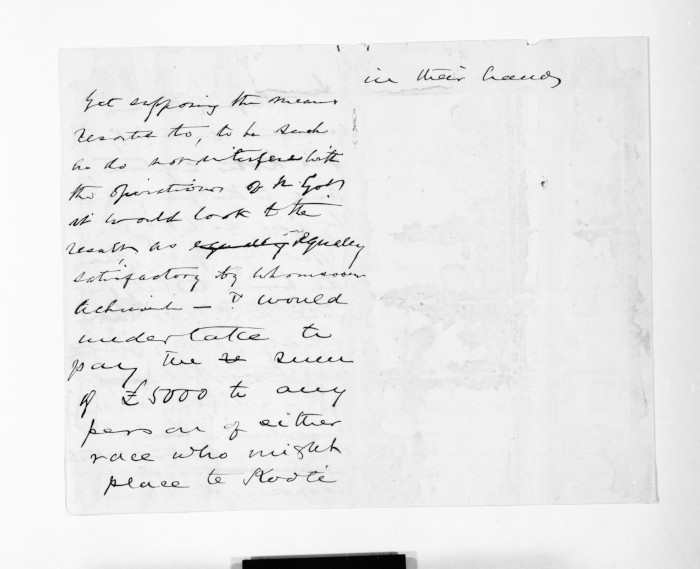 Yet supposing the means
resorted to, to be such
as do not interfere with
the operations of the Govt
it would look to the
results as equally equally
satisfactory by whomsoever
achieved — & would
undertake to
pay the se sum
of £5000 to any
person of either
race who might
place te Kooti
in their hands